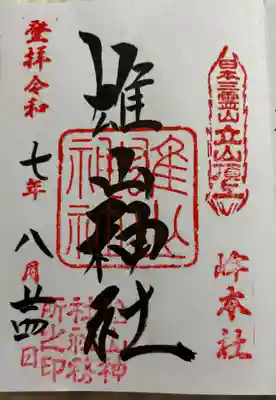 日本三霊山 立山頂上
峰本社
雄山神社
雄山
神社
登拝令和
七年
八月
廿四
日
雄山神
社社務
所之印